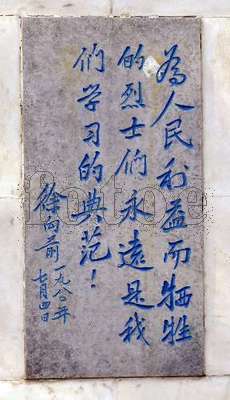 為人民利益而牺牲
的烈士们永遠是我
们学习的典范！
徐向前 一九八〇年
七月四日